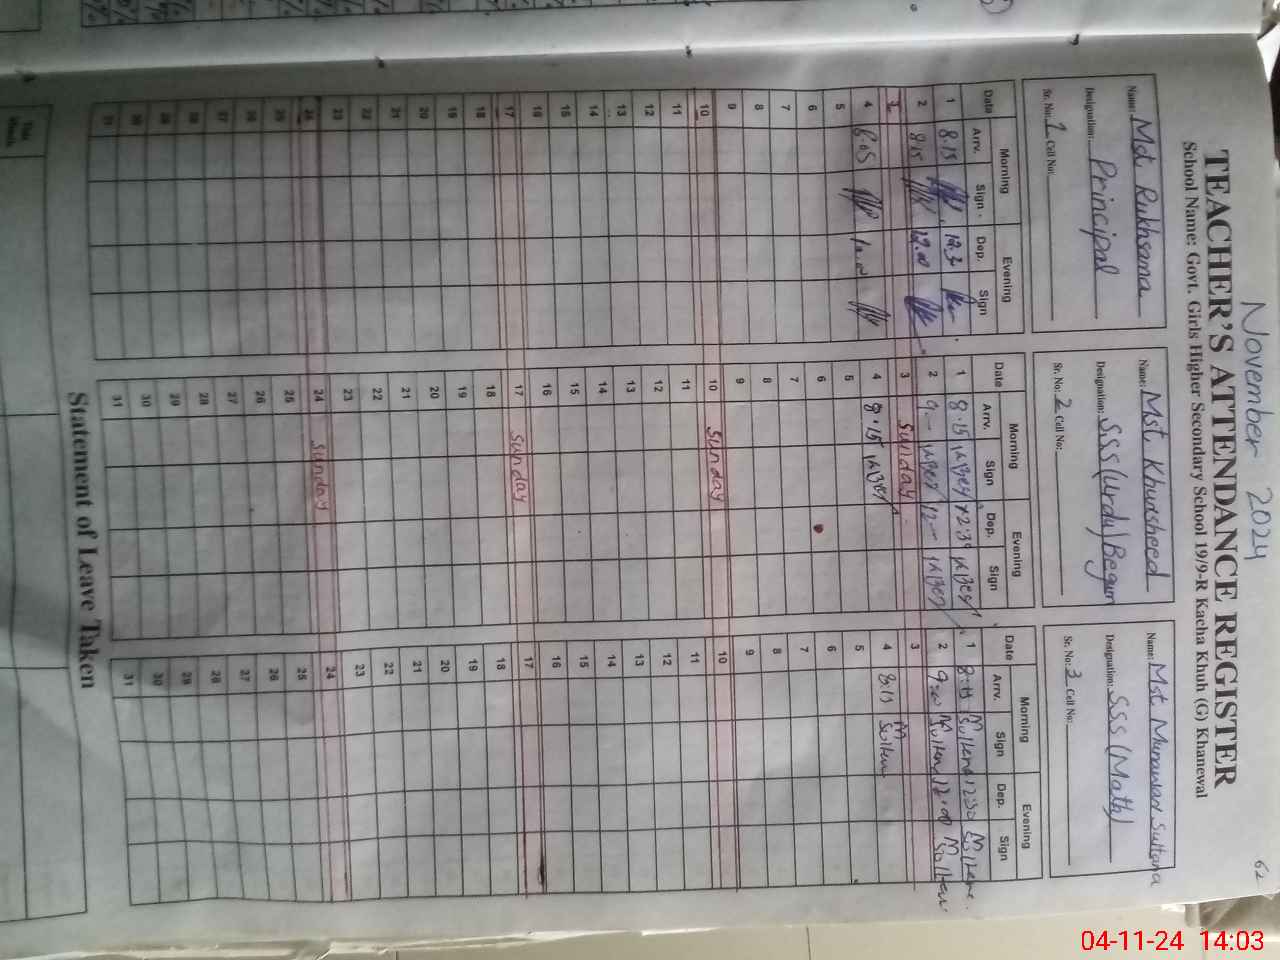 November 2024
62
TEACHER'S ATTENDANCE REGISTER
School Name: Govt. Girls Higher Secondary School 19/9-R Kacha Khuh (G) Khanewal
Name: Mst. Rukhsana
Designation: Principal
Sr. No: 1 Cell No:
Name: Mst. Khursheed
Designation: SSS (Urdu) Begum
Sr. No: 2 Cell No:
Name: Mst Munawar Sultana
Designation: SSS (Math)
Sr. No: 3 Cell No:
Date Morning Evening
Arrv. Sign Dep. Sign
1 8.15 12.3
2 8.15 12.00
3
4 8.05
5
6
7
8
9
10
11
12
13
14
15
16
17
18
19
20
21
22
23
24
25
26
27
28
29
30
31
Date Morning Evening
Arrv. Sign Dep. Sign
1 8.15 12.30
2 9 12
3 Sunday
4 8.15
5
6
7
8
9
10 Sunday
11
12
13
14
15
16
17 Sunday
18
19
20
21
22
23
24 Sunday
25
26
27
28
29
30
31
Date Morning Evening
Arrv. Sign Dep. Sign
1 8:15 12:30
2 9:00 12:00
3
4 8:15
5
6
7
8
9
10
11
12
13
14
15
16
17
18
19
20
21
22
23
24
25
26
27
28
29
30
31
Statement of Leave Taken
04-11-24 14:03